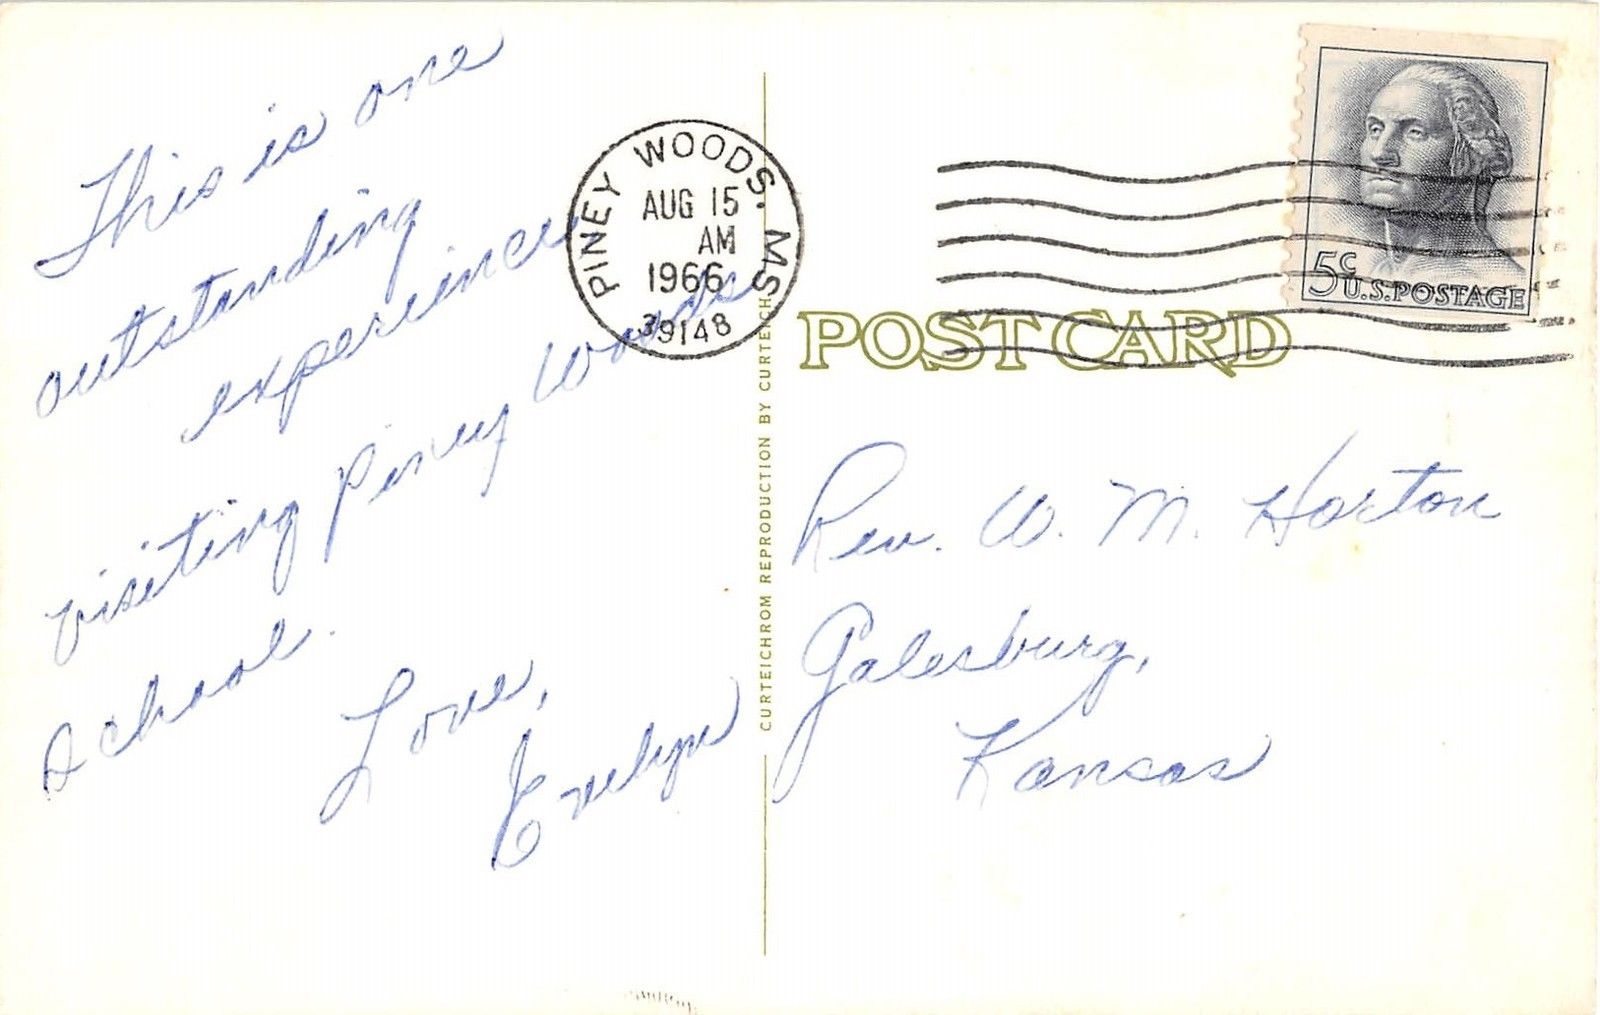 This is one
outstanding
experience
visiting Piney Woods
School.
Love,
Evelyn
PINEY WOODS, MS
AUG 15
AM
1966
39148
5¢
U.S. POSTAGE
POST CARD
CURTEICHROM REPRODUCTION BY CURTEICH
Rev. W. M. Horton
Galesburg,
Kansas